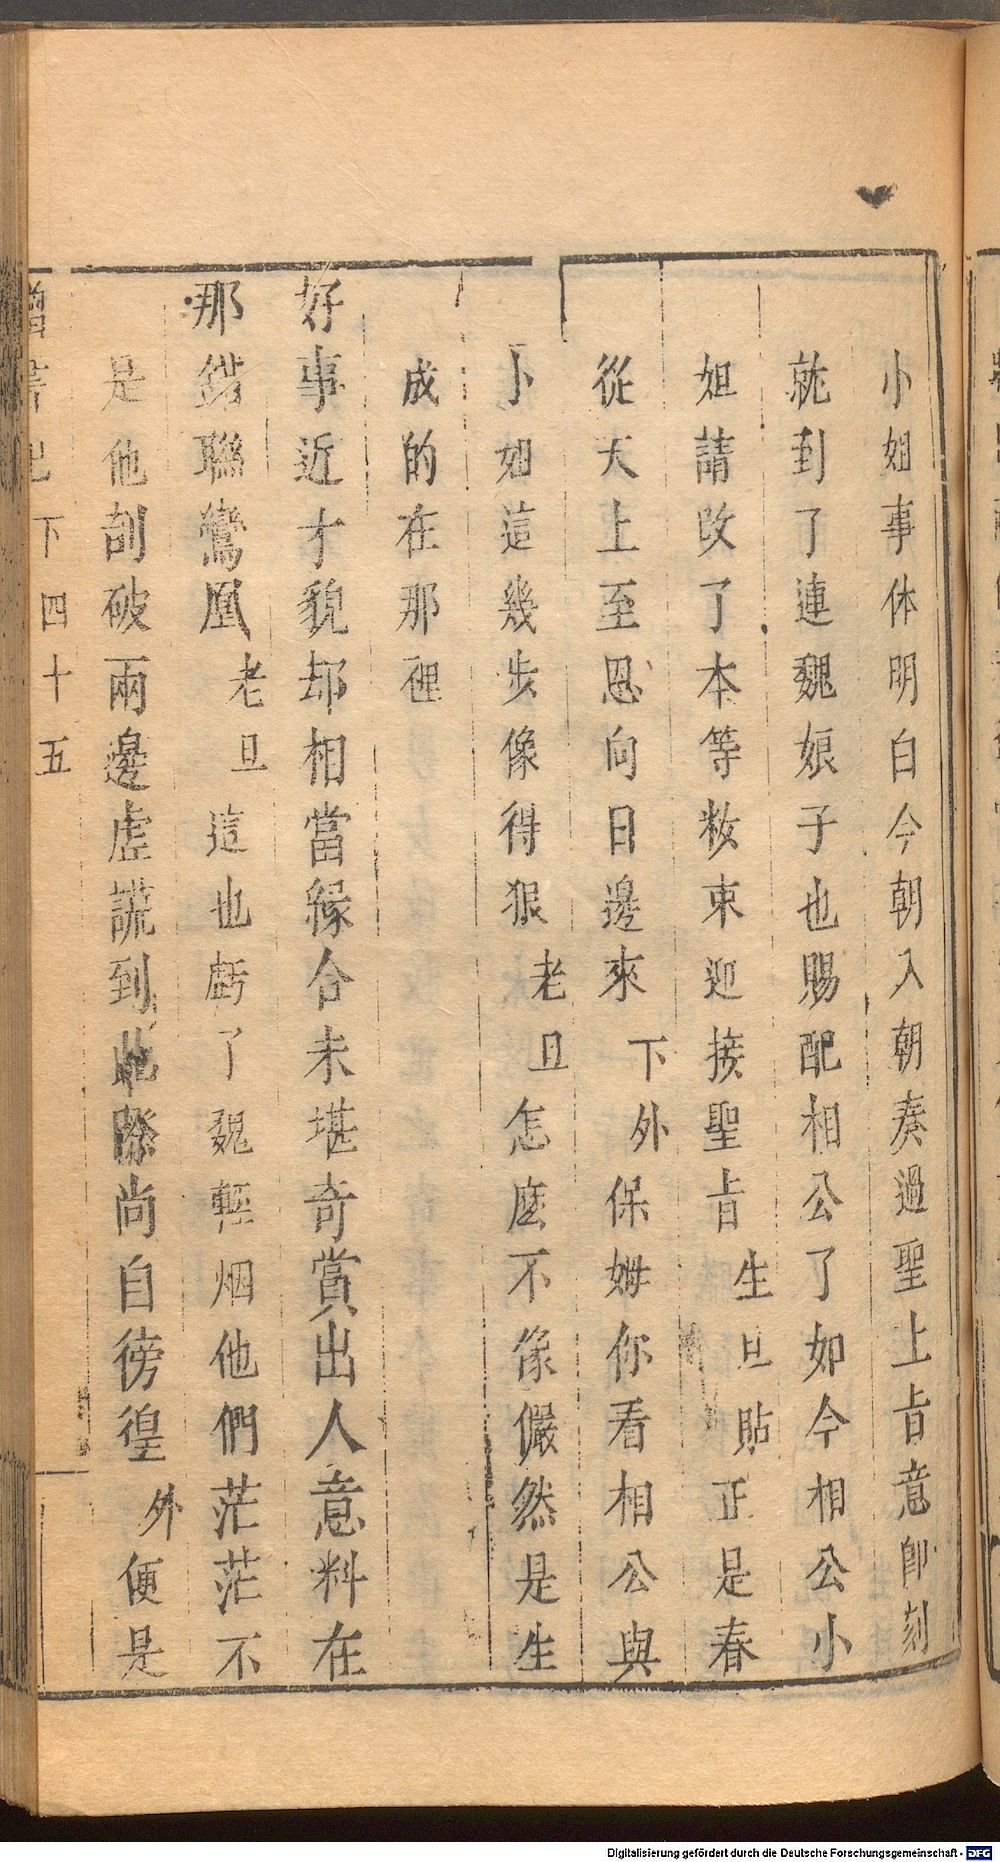 小姐事休明白今朝入朝奏過聖上旨意即刻
就到了連魏娘子也賜配相公了如今相公小
姐請改了本等妝束迎接聖旨生旦貼正是春
從天上至恩向日邊來下外保姆你看相公與
小姐這幾步像得狠老旦怎麽不像儼然是生
成的在那裡
好事近才貌却相當緣合未堪奇賞出人意料在
那錯聯鸞凰老旦這也虧了魏輕烟他們茫茫不
是他剖破兩邊虛謊到此際尚自徬徨外便是
下四十五
Digitalisierung gefördert durch die Deutsche Forschungsgemeinschaft - DFG